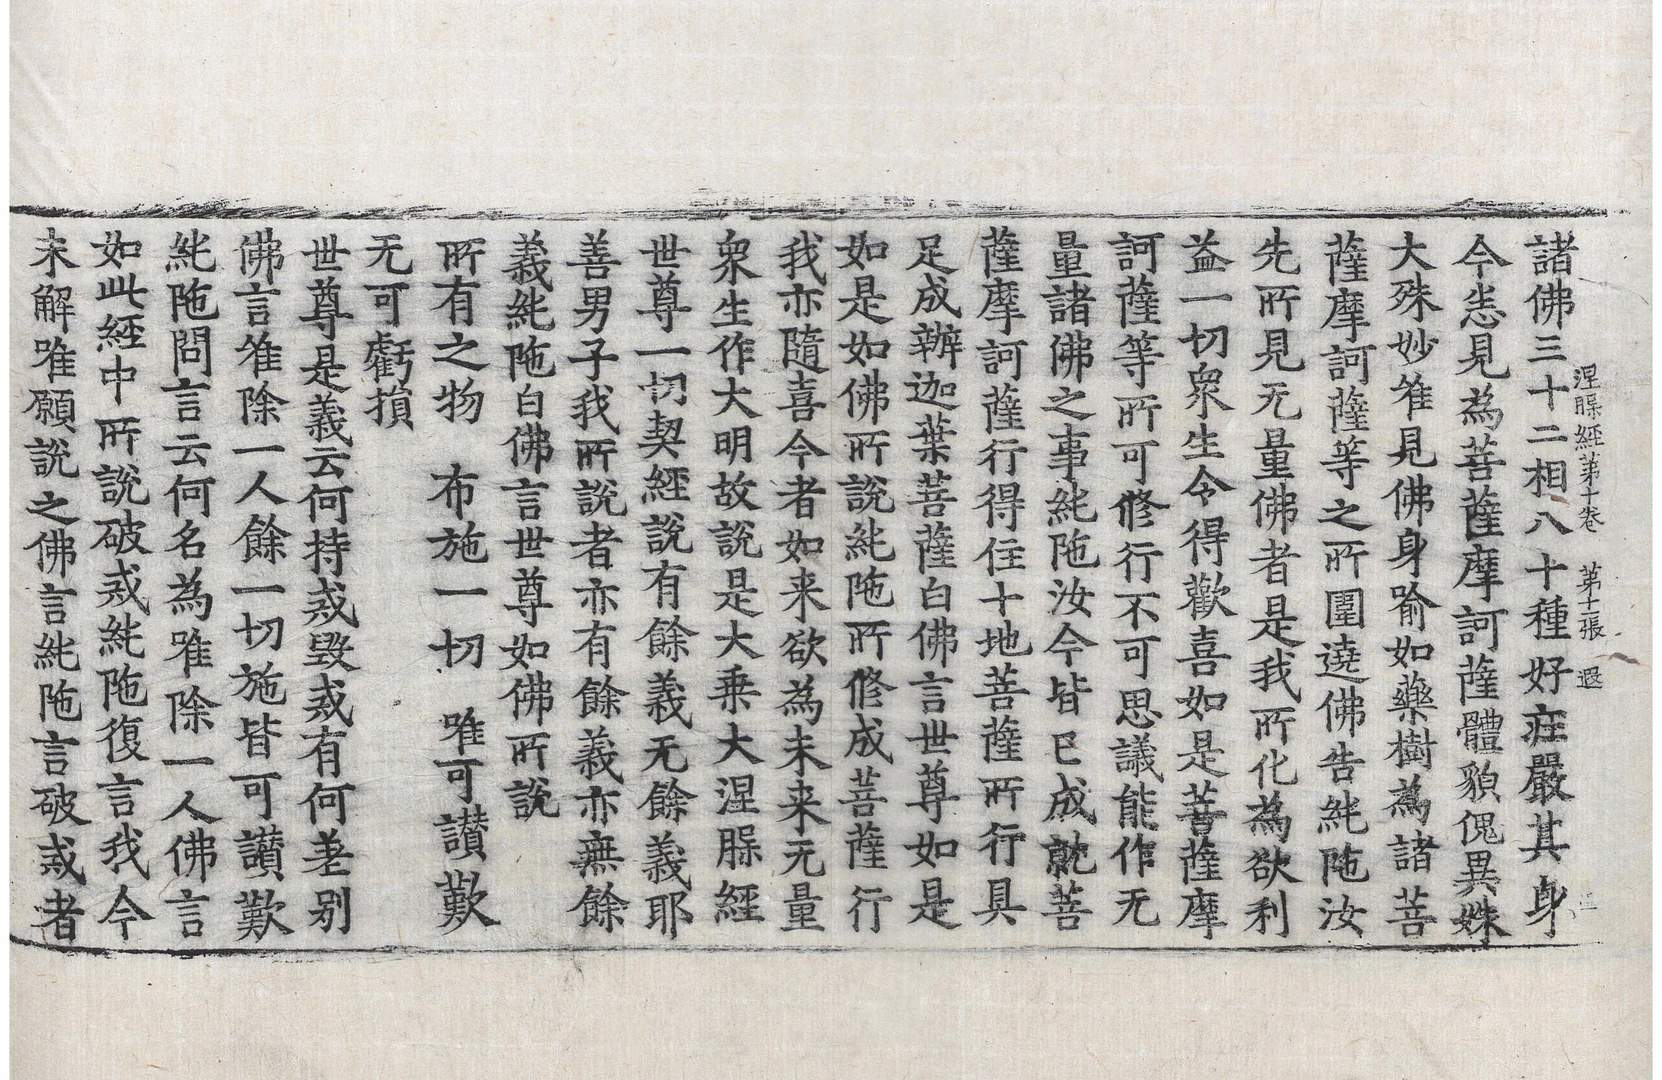 涅槃經第十卷　第十張　遐
諸佛三十二相八十種好莊嚴其身
今悉見為菩薩摩訶薩體貌傀異姝
大殊妙唯見佛身喻如藥樹為諸菩
薩摩訶薩等之所圍遶佛告純陁汝
先所見无量佛者是我所化為欲利
益一切衆生令得歡喜如是菩薩摩
訶薩等所可修行不可思議能作无
量諸佛之事純陁汝今皆已成就菩
薩摩訶薩行得住十地菩薩所行具
足成辦迦葉菩薩白佛言世尊如是
如是如佛所說純陁所修成菩薩行
我亦隨喜今者如来欲為未来无量
衆生作大明故說是大乘大涅槃經
世尊一切契經說有餘義无餘義耶
善男子我所說者亦有餘義亦無餘
義純陁白佛言世尊如佛所說
所有之物　布施一切　唯可讃歎
无可虧損
世尊是義云何持戒毀戒有何差別
佛言唯除一人餘一切施皆可讃歎
純陁問言云何名為唯除一人佛言
如此經中所說破戒純陁復言我今
未解唯願說之佛言純陁言破戒者